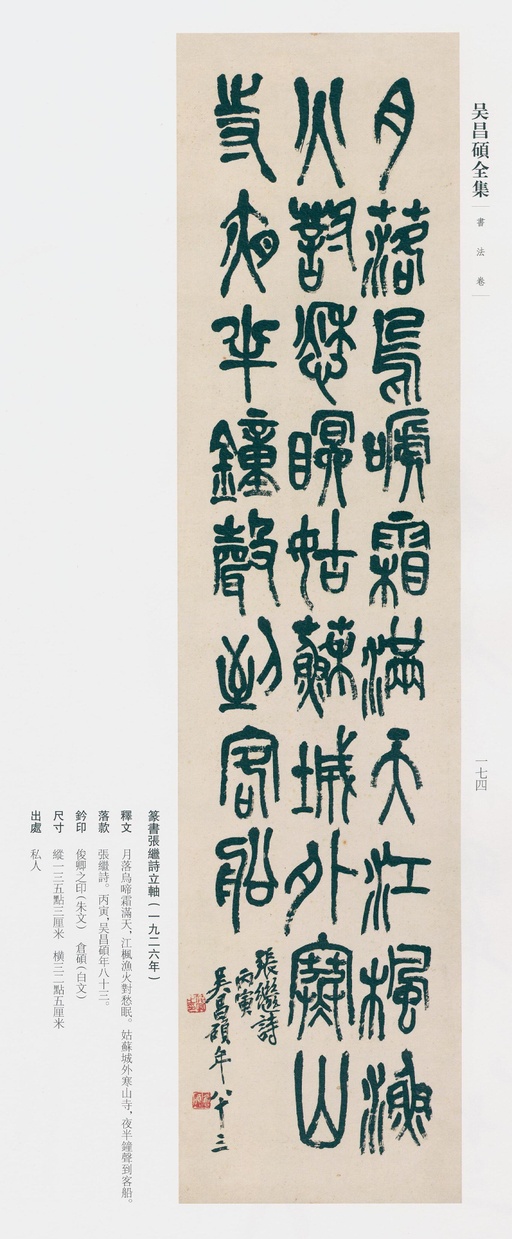 吴昌碩全集
書法卷
一七四
月落烏啼霜滿天江楓漁
火對愁眠姑蘇城外寒山
寺夜半鐘聲到客船
張繼詩
丙寅
吴昌碩年八十三
篆書張繼詩立軸(一九二六年)
釋文 月落烏啼霜滿天,江楓漁火對愁眠。姑蘇城外寒山寺,夜半鐘聲到客船。
落款 張繼詩。丙寅,吴昌碩年八十三。
鈐印 俊卿之印(朱文) 倉碩(白文)
尺寸 縱一三五點三厘米 橫三二點五厘米
出處 私人